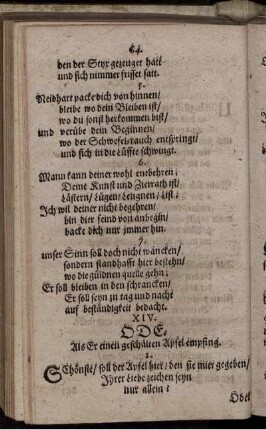 64.
den der Styx gezeuget hatt
und sich nimmer frisset satt.
5.
Neidhart packe dich von hinnen/
bleibe wo dein Bleiben ist/
wo du sonst herkommen bist/
und verübe dein Beginnen/
wo der Schwefelrauch entspringt/
und sich in die Lüffte schwingt.
6.
Mann kann deiner wohl entbehren;
Deine Kunst und Zierraht ist/
Lästern/ Lügen/ List;
Ich wil deiner nicht begehren/
bin dier feind von anbegin/
packe dich nur immer hin.
7.
unser Sinn soll doch nicht wancken/
sondern standhafft hier bestehn/
wo die güldnen quelle gehn;
Er soll bleiben in den schrancken/
Er soll seyn zu tag und nacht
auf beständigkeit bedacht.
XIV.
ODE.
Als Er einen geschälten Apfel empfing.
1.
SChönste/ soll der Apfel hier/ den sie mier gegeben/
Ihrer Liebe zeichen seyn
nur allein?
Odel